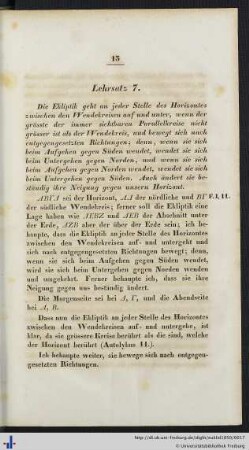 13
Lehrsatz 7.
Die Ekliptik geht an jeder Stelle des Horizontes
zwischen den Wendekreisen auf und unter, wenn der
grösste der immer sichtbaren Parallelkreise nicht
grösser ist als der Wendekreis, und bewegt sich nach
entgegengesetzten Richtungen; denn, wenn sie sich
beim Aufgehen gegen Süden wendet, wendet sie sich
beim Untergehen gegen Norden, und wenn sie sich
beim Aufgehen gegen Norden wendet, wendet sie sich
beim Untergehen gegen Süden. Auch ändert sie be-
ständig ihre Neigung gegen unsern Horizont.
sei der Horizont, der nördliche und
der südliche Wendekreis; ferner soll die Ekliptik eine
Lage haben wie und der Abschnitt unter
der Erde, der über der Erde sein; ich be-
haupte, dass die Ekliptik an jeder Stelle des Horizontes
zwischen den Wendekreisen auf- und untergeht und
sich nach entgegengesetzten Richtungen bewegt; denn,
wenn sie sich beim Aufgehen gegen Süden wendet,
wird sie sich beim Untergehen gegen Norden wenden
und umgekehrt. Ferner behaupte ich, dass sie ihre
Neigung gegen uns beständig ändert.
Die Morgenseite sei bei A, Γ, und die Abendseite
bei Δ, B.
Dass nun die Ekliptik an jeder Stelle des Horizontes
zwischen den Wendekreisen auf- und untergehe, ist
klar, da sie grössere Kreise berührt als die sind, welche
der Horizont berührt (Autolykos 11.).
Ich behaupte weiter, sie bewege sich nach entgegen-
gesetzten Richtungen.
Universitätsbibliothek Freiburg